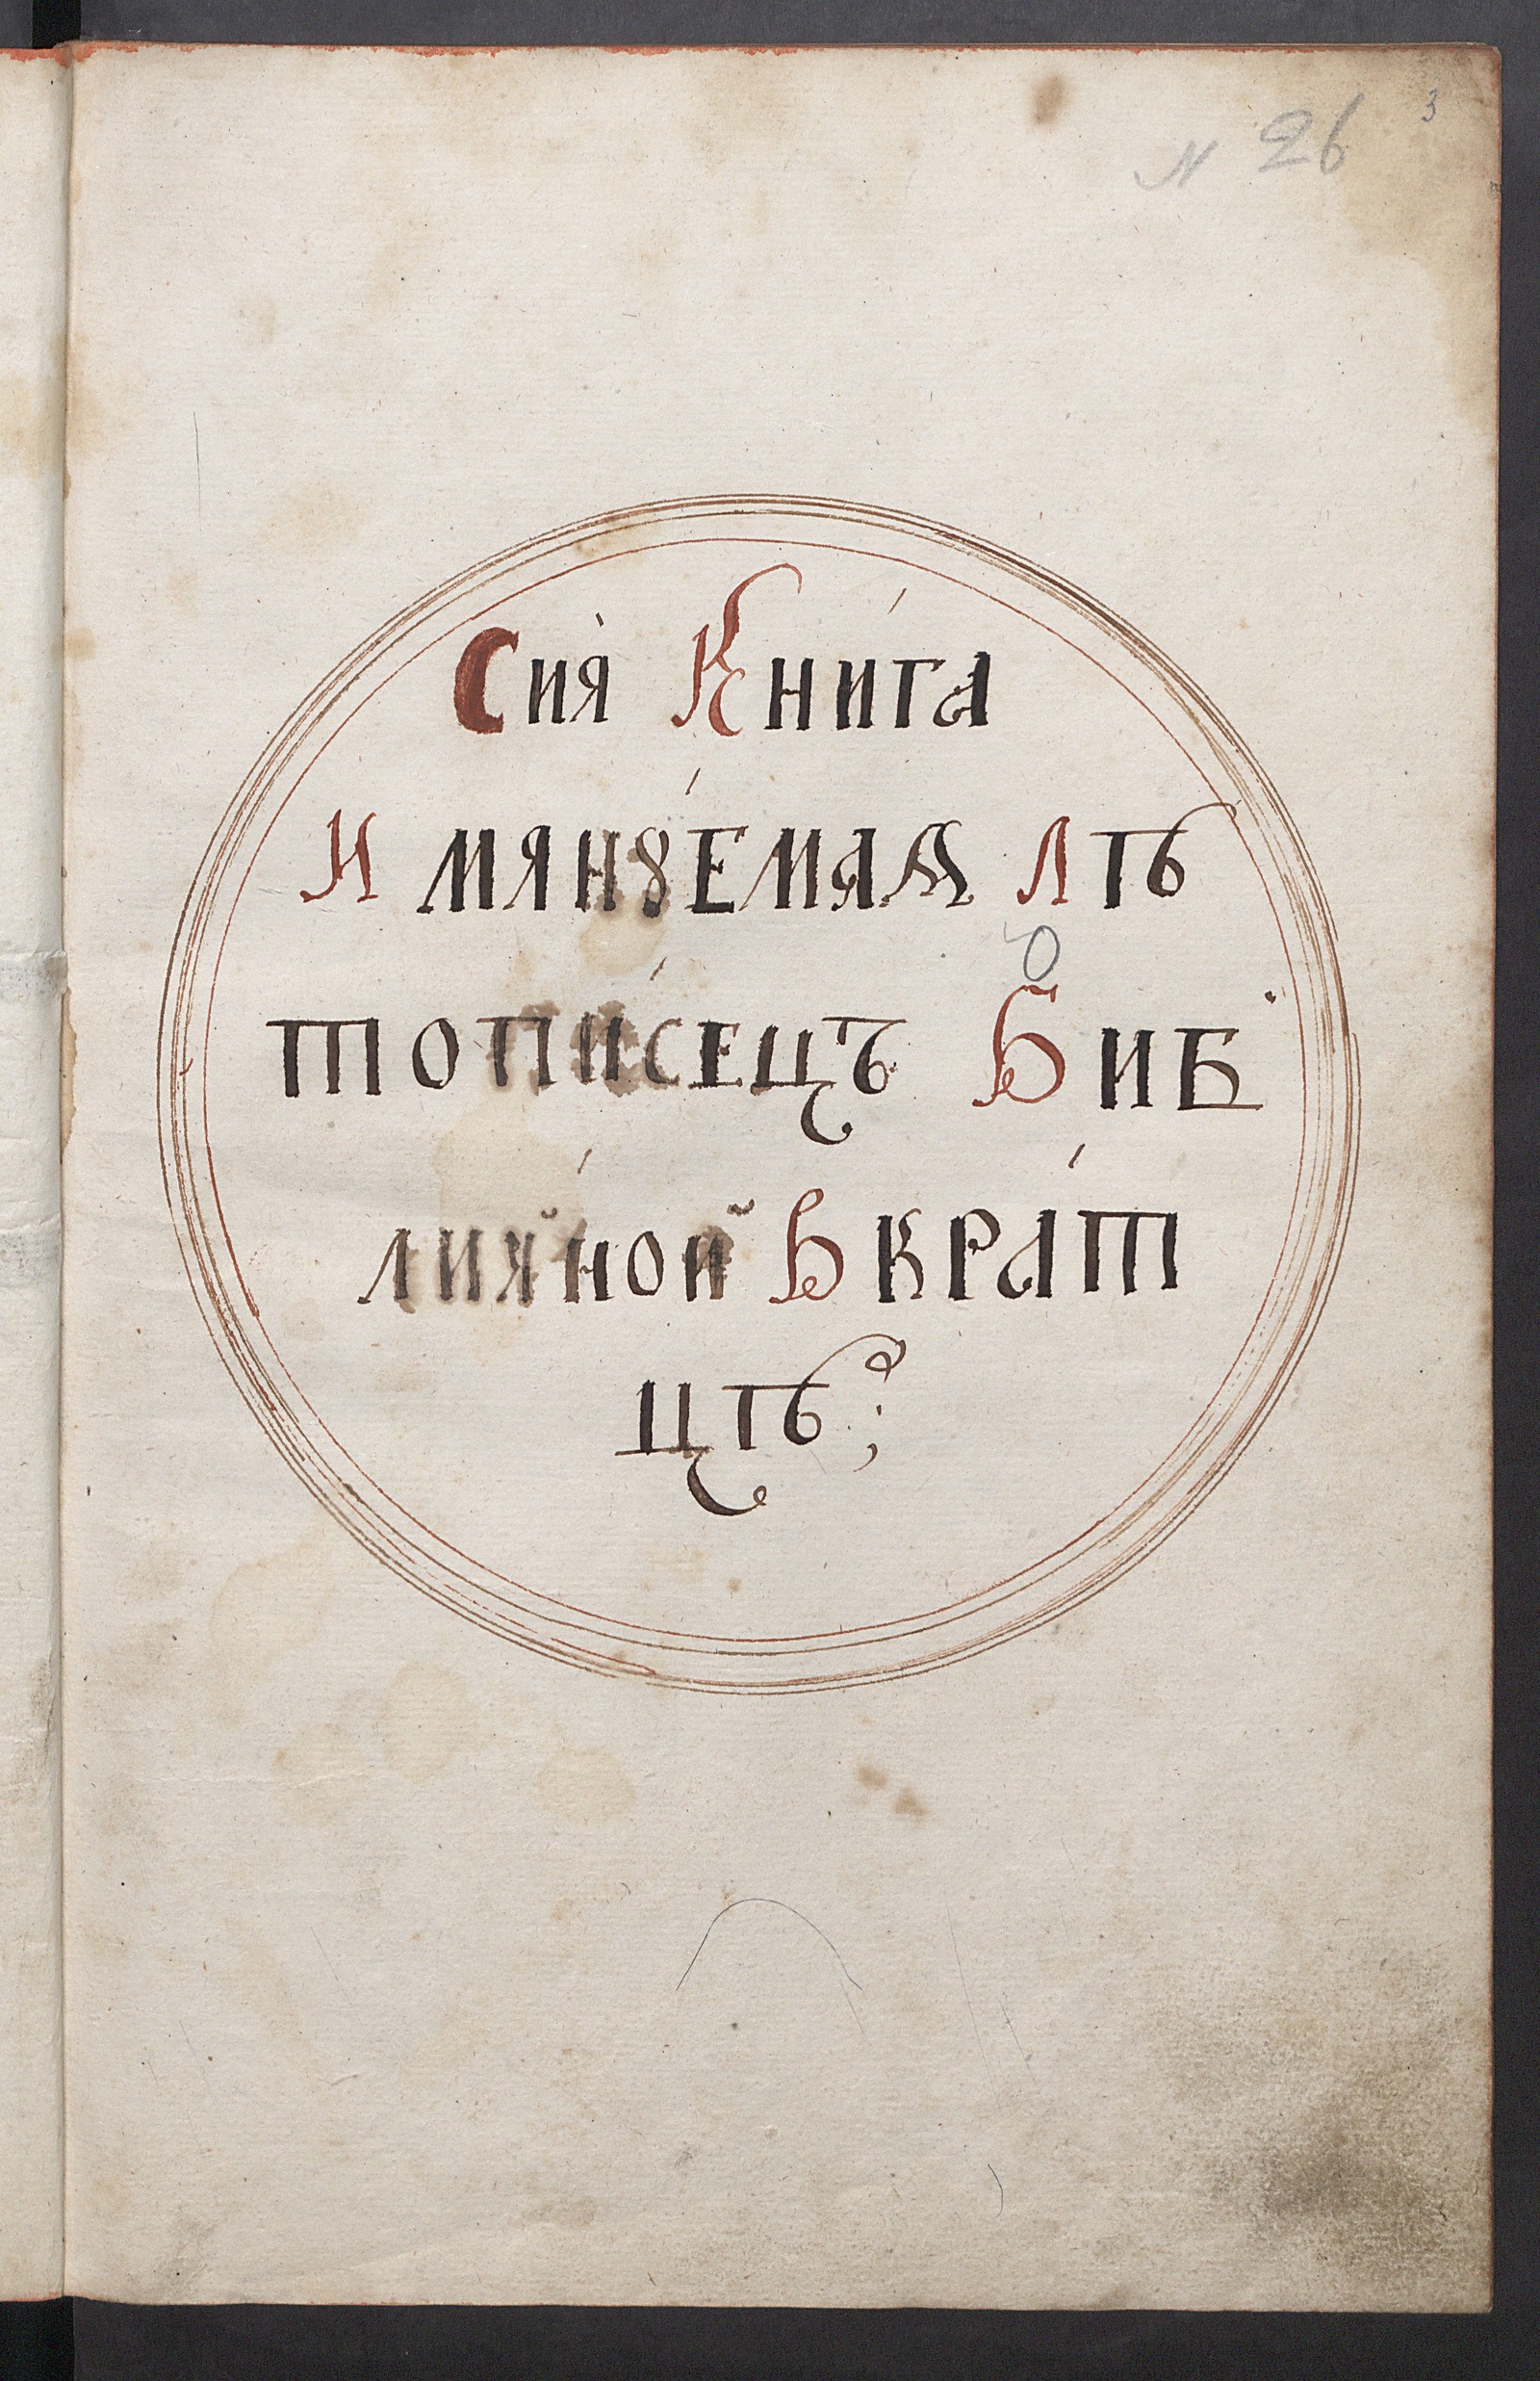 3
N 26
Сия̀ Кни́га
И мянꙋ́емаѧ Лѣ
топи́сецъ Биб
лия́ной Вкра́т
цѣ;